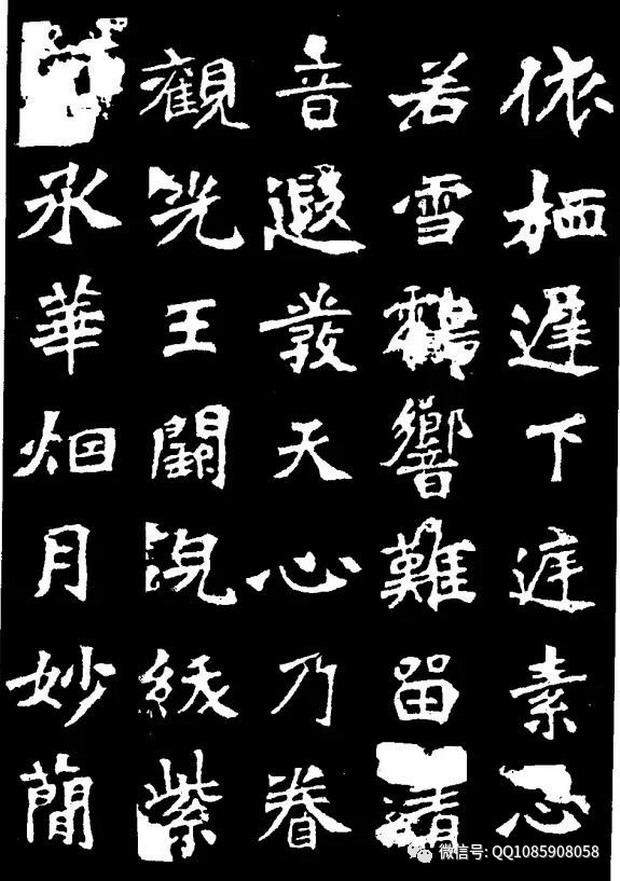 依栖遲下庭素心
若雪鶴響難留清
音遐發天心乃眷
觀光王闕紱紫
承華烟月妙簡
微信号: QQ1085908058